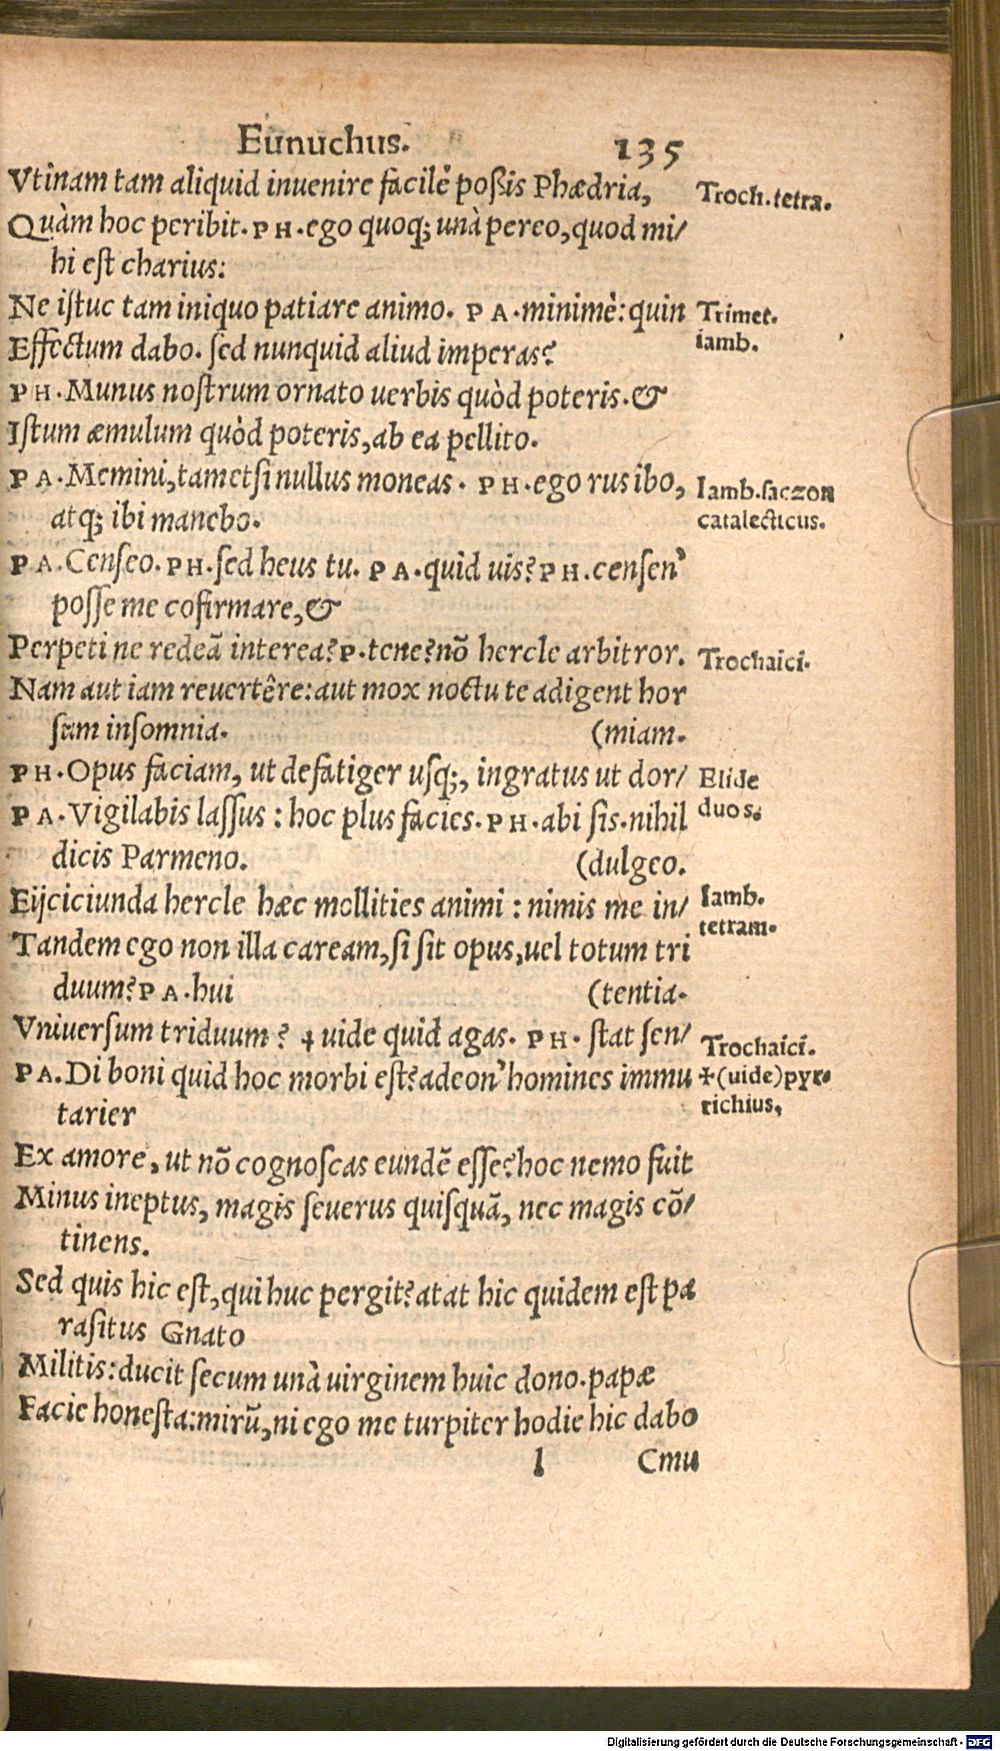 Eunuchus. 135
Vtinam tam aliquid inuenire facilè poßis Phædria,
Troch.tetra.
Quàm hoc peribit. PH. ego quoq; unà pereo, quod mi/
hi est charius:
Ne istuc tam iniquo patiare animo. PA. minimè: quin
Trimet.
iamb.
Effectum dabo. sed nunquid aliud imperas?
PH. Munus nostrum ornato uerbis quòd poteris. &
Istum æmulum quòd poteris, ab ea pellito.
PA. Memini, tametsi nullus moneas. PH. ego rus ibo,
Iamb.saczon
catalecticus.
atq; ibi manebo.
PA. Censeo. PH. sed heus tu. PA. quid uis? PH. censen'
posse me cofirmare, &
Perpeti ne redeã interea? P. tene? nõ hercle arbitror.
Trochaici.
Nam aut iam reuertêre: aut mox noctu te adigent hor
sum insomnia. (miam.
PH. Opus faciam, ut defatiger usq;, ingratus ut dor/
Elide
duos.
PA. Vigilabis lassus : hoc plus facies. PH. abi sis. nihil
dicis Parmeno. (dulgeo.
Eijciciunda hercle hæc mollities animi : nimis me in/
Iamb.
tetram.
Tandem ego non illa caream, si sit opus, uel totum tri
duum? PA. hui (tentia.
Vniuersum triduum ? ✢ uide quid agas. PH. stat sen/
Trochaici.
PA. Di boni quid hoc morbi est? adeon' homines immu
✢(uide)pyr-
richius,
tarier
Ex amore, ut nõ cognoscas eundẽ esse? hoc nemo fuit
Minus ineptus, magis seuerus quisquã, nec magis cõ/
tinens.
Sed quis hic est, qui huc pergit? atat hic quidem est pa
rasitus Gnato
Militis: ducit secum unà uirginem huic dono. papæ
Facie honesta: mirũ, ni ego me turpiter hodie hic dabo
l Cmu
Digitalisierung gefördert durch die Deutsche Forschungsgemeinschaft - DFG